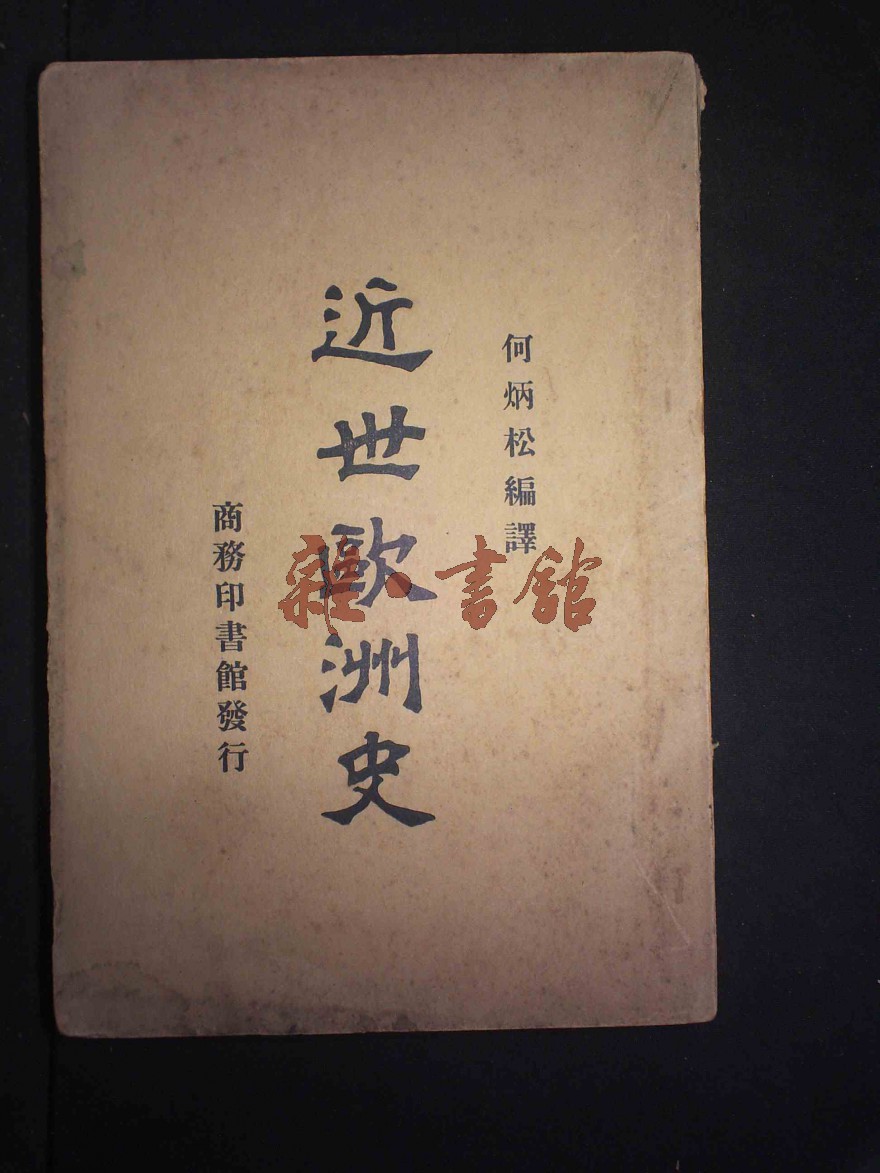 何炳松編譯
近世歐洲史
商務印書館發行
雜·書館